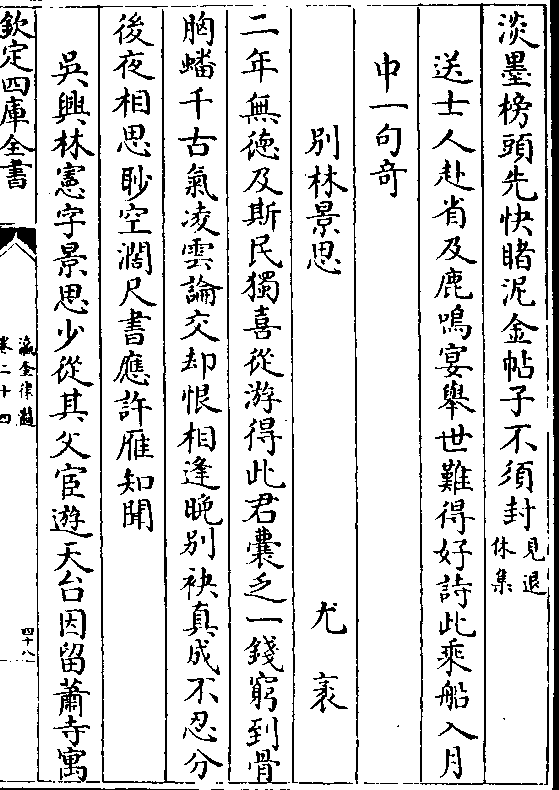 淡墨榜頭先快睹泥金帖子不須封見退休集
送士人赴省及鹿鳴宴舉世難得好詩此乘船入月
中一句奇
別林景思　尤袤
二年無徳及斯民獨喜從游得此君囊乏一錢窮到骨
胸蟠千古氣凌雲論交却恨相逢晚别袂真成不忍分
後夜相思眇空濶尺書應許雁知聞
吳興林憲字景思少從其父宦遊天台因留蕭寺寓
欽定四庫全書
瀛奎律髓
卷二十四
四十八